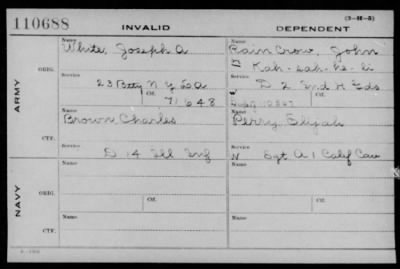 110688
INVALID
DEPENDENT
(3-11-5)
Name White, Joseph A
Name Rain Crow, John
ORIG.
ARMY
Service 23 Batty N.Y. L.A.
Ctf. 71648
Service D 2 Ind H Gds
Ctf.
Name Brown Charles
Name Perry Elijah
CTF.
Service D 14 Ill Inf
Service N Sgt A 1 Calif Cav
Name
Name
NAVY
ORIG.
Service
Ctf.
Service
Ctf.
Name
Name
CTF.
Service
Service